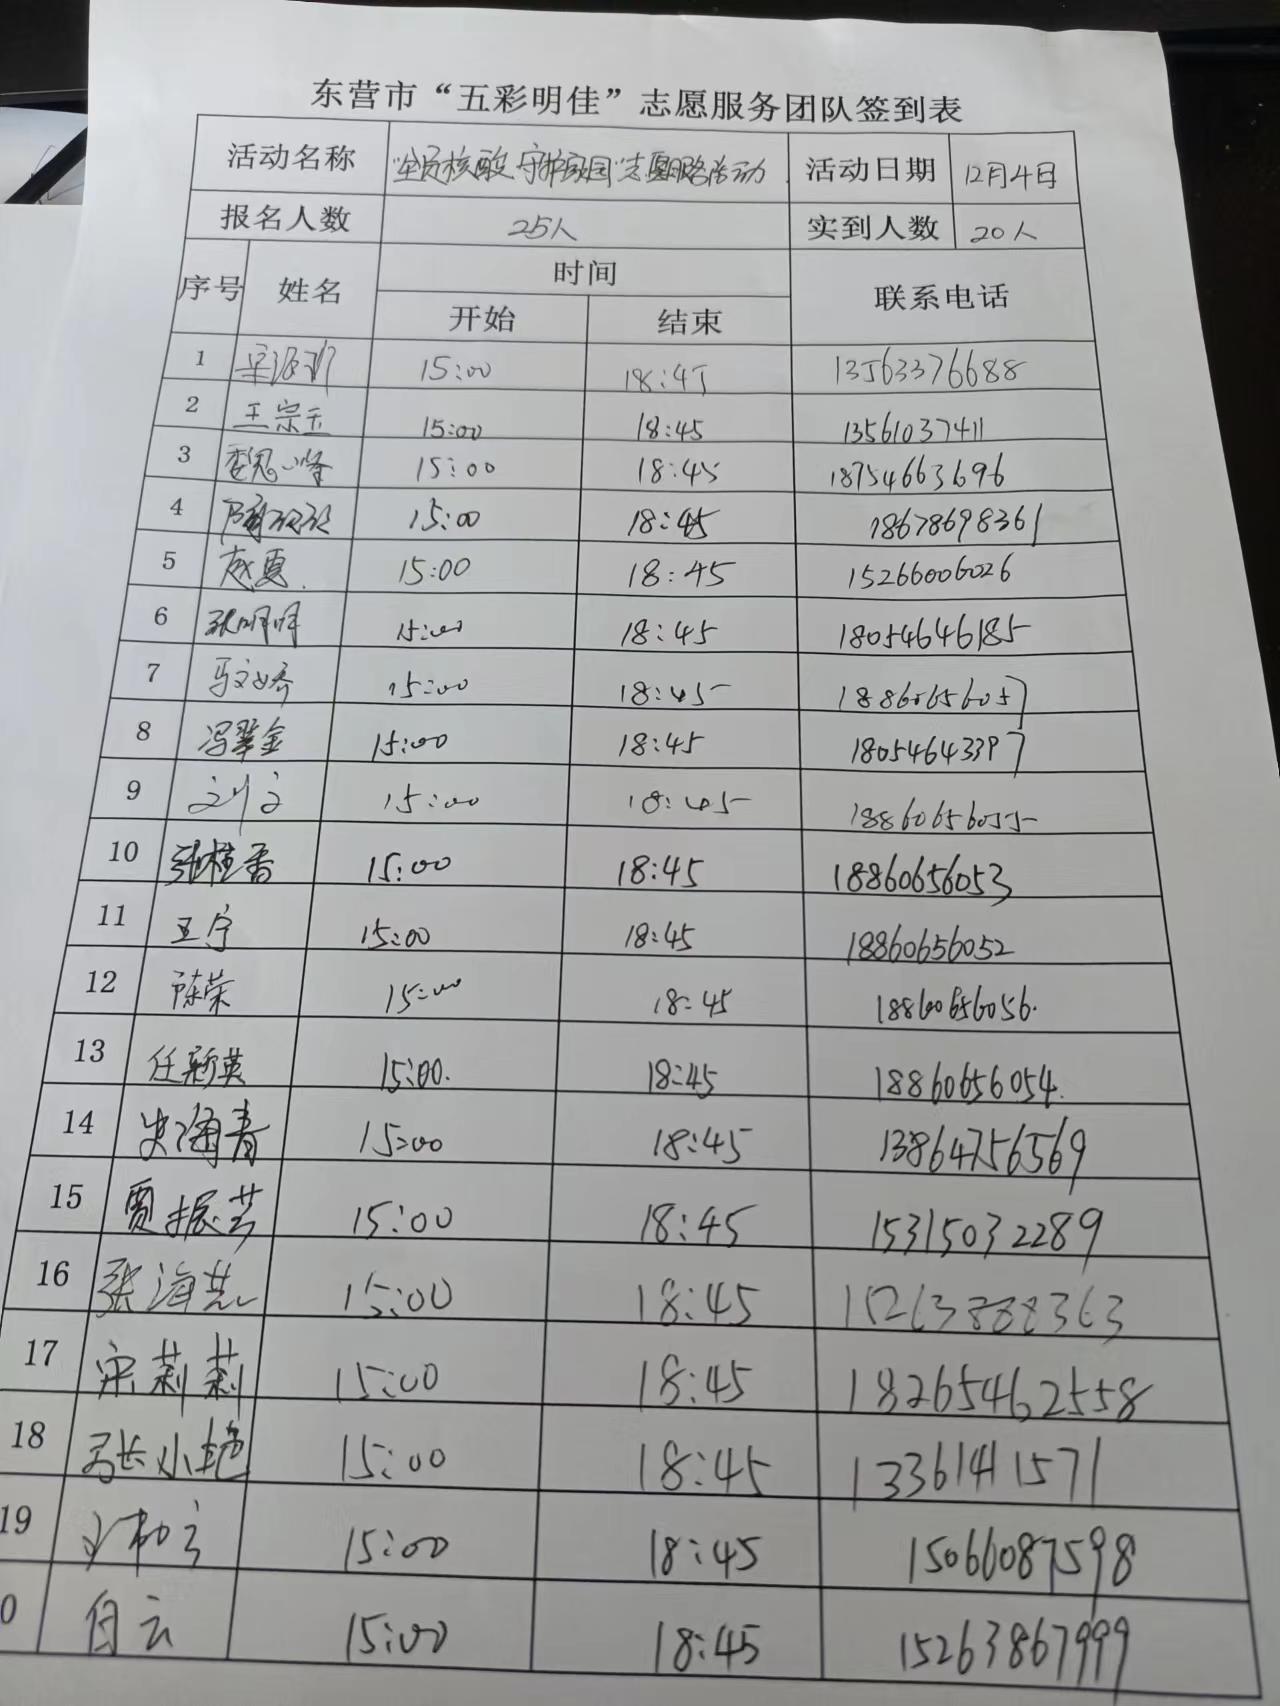 东营市“五彩明佳”志愿服务团队签到表
活动名称 “全员核酸 守护家园”志愿服务活动 活动日期 12月4日
报名人数 25人 实到人数 20人
序号 姓名 时间 联系电话
开始 结束
1 15:00 18:45 13563376688
2 王宗玉 15:00 18:45 13561037411
3 15:00 18:45 18754663696
4 15:00 18:45 18678698361
5 赵夏 15:00 18:45 15266006026
6 张明明 15:00 18:45 18054646185
7 马文娇 15:00 18:45 18860656057
8 冯翠金 15:00 18:45 18054643397
9 刘文 15:00 18:45 18860656055
10 张桂香 15:00 18:45 18860656053
11 王宁 15:00 18:45 18860656052
12 陈荣 15:00 18:45 18860656056.
13 任新英 15:00. 18:45 18860656054.
14 史海青 15:00 18:45 13864756569
15 贾振芸 15:00 18:45 15315032289
16 张海燕 15:00 18:45 15263888363
17 宋莉莉 15:00 18:45 18265462558
18 张小艳 15:00 18:45 13361411571
19 15:00 18:45 15066087598
0 白云 15:00 18:45 15263867999